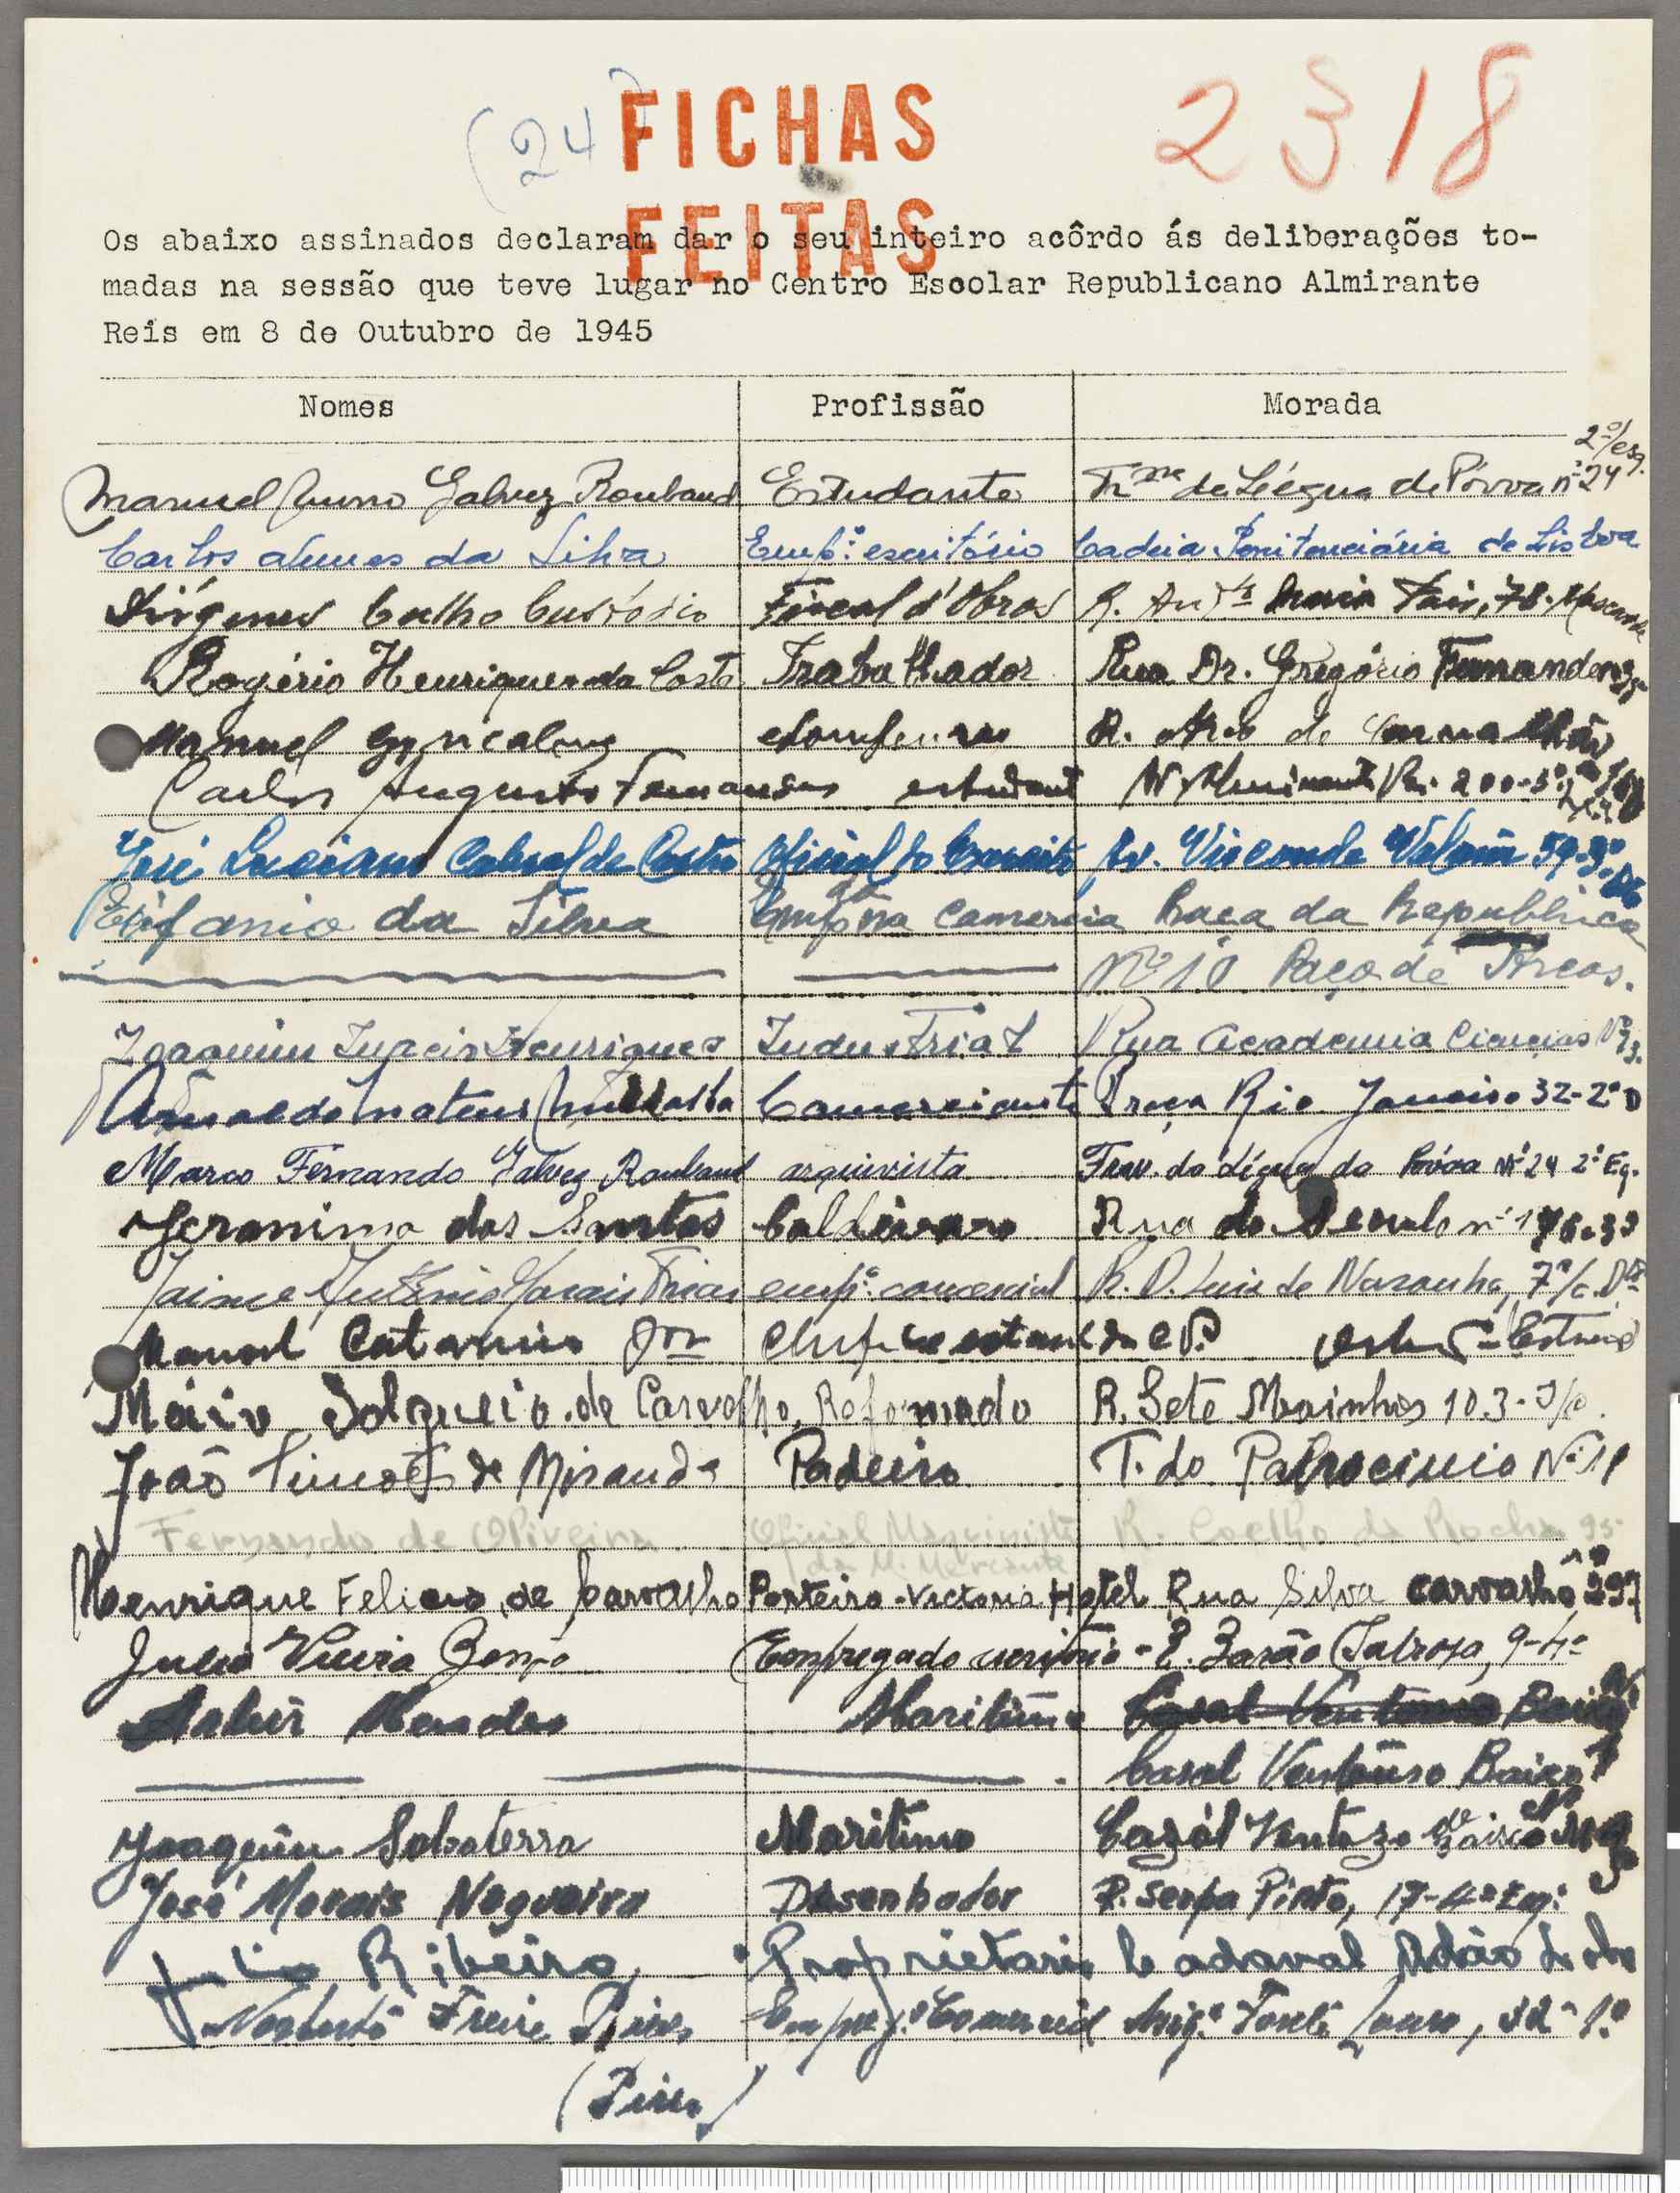 (24)
FICHAS
2318
FEITAS
Os abaixo assinados declaram dar o seu inteiro acôrdo ás deliberações to-
madas na sessão que teve lugar no Centro Escolar Republicano Almirante
Reis em 8 de Outubro de 1945
Nomes Profissão Morada
2º/esq.
Manuel Nuno Galvez Roubaud Estudante da Légua da Póvoa nº 24
Carlos Nunes da Silva Empº. escritório Cadeia Penitenciária de Lisboa
Coelho Custódio Fiscal d'Obras R. Maria Pais, 78
Rogério Henriques da Costa Trabalhador Rua Dr. Gregório Fernandes
Manuel Gonçalves R. de
Carlos Augusto Fernandes estudante 200-3º
José Luciano Cabral de Castro Oficial do Exercito Av. Visconde Valmôr 59-3º Dtº
Epifanio da Silva Comercia Praça da Republica
Nº 10 Paço de Arcos.
Joaquim Inacio Henriques Industrial Rua Academia Ciencias
Arnaldo Mateus Comerciante Praça Rio Janeiro 32-2º D
Marco Fernando Galvez Roubaud arquivista Trav. da Légua da Póvoa Nº 24 2º Eq.
Jeronimo dos Santos Caldeireiro Rua do Seculo nº 176-3º
Jaime António Morais Frias empº. comercial R. D. Luis de Noronha, 7 r/c. Dtº
Manuel Catarino Jor Chefe da CP.
Mário Salgueiro de Carvalho, Reformado R. Sete Moinhos 10
João Simões de Miranda Padeiro T. do Patrocinio Nº 11
Fernando de Oliveira Oficial Maquinista R. Coelho da Rocha 95
da M. Mercante
Henrique Felicio de Carvalho Porteiro-Victoria Hotel Rua Silva Carvalho
Julio Vieira Empregado escritório - R. Barão Sabrosa, 9-4º
Artur Mendes Maritimo Casal Ventoso Baixo
Casal Ventôso Baixo
Joaquim Salvaterra Maritimo Cazál Ventozo de Baixo
José Morais Nogueira Desenhador R. Serpa Pinto, 17-4º Eqº
Julio Ribeiro Proprietario Cadaval Adão Lobo
Norberto Freire Pires Empregº. Comercial Fonte Louro, 32-1º
(Pires)